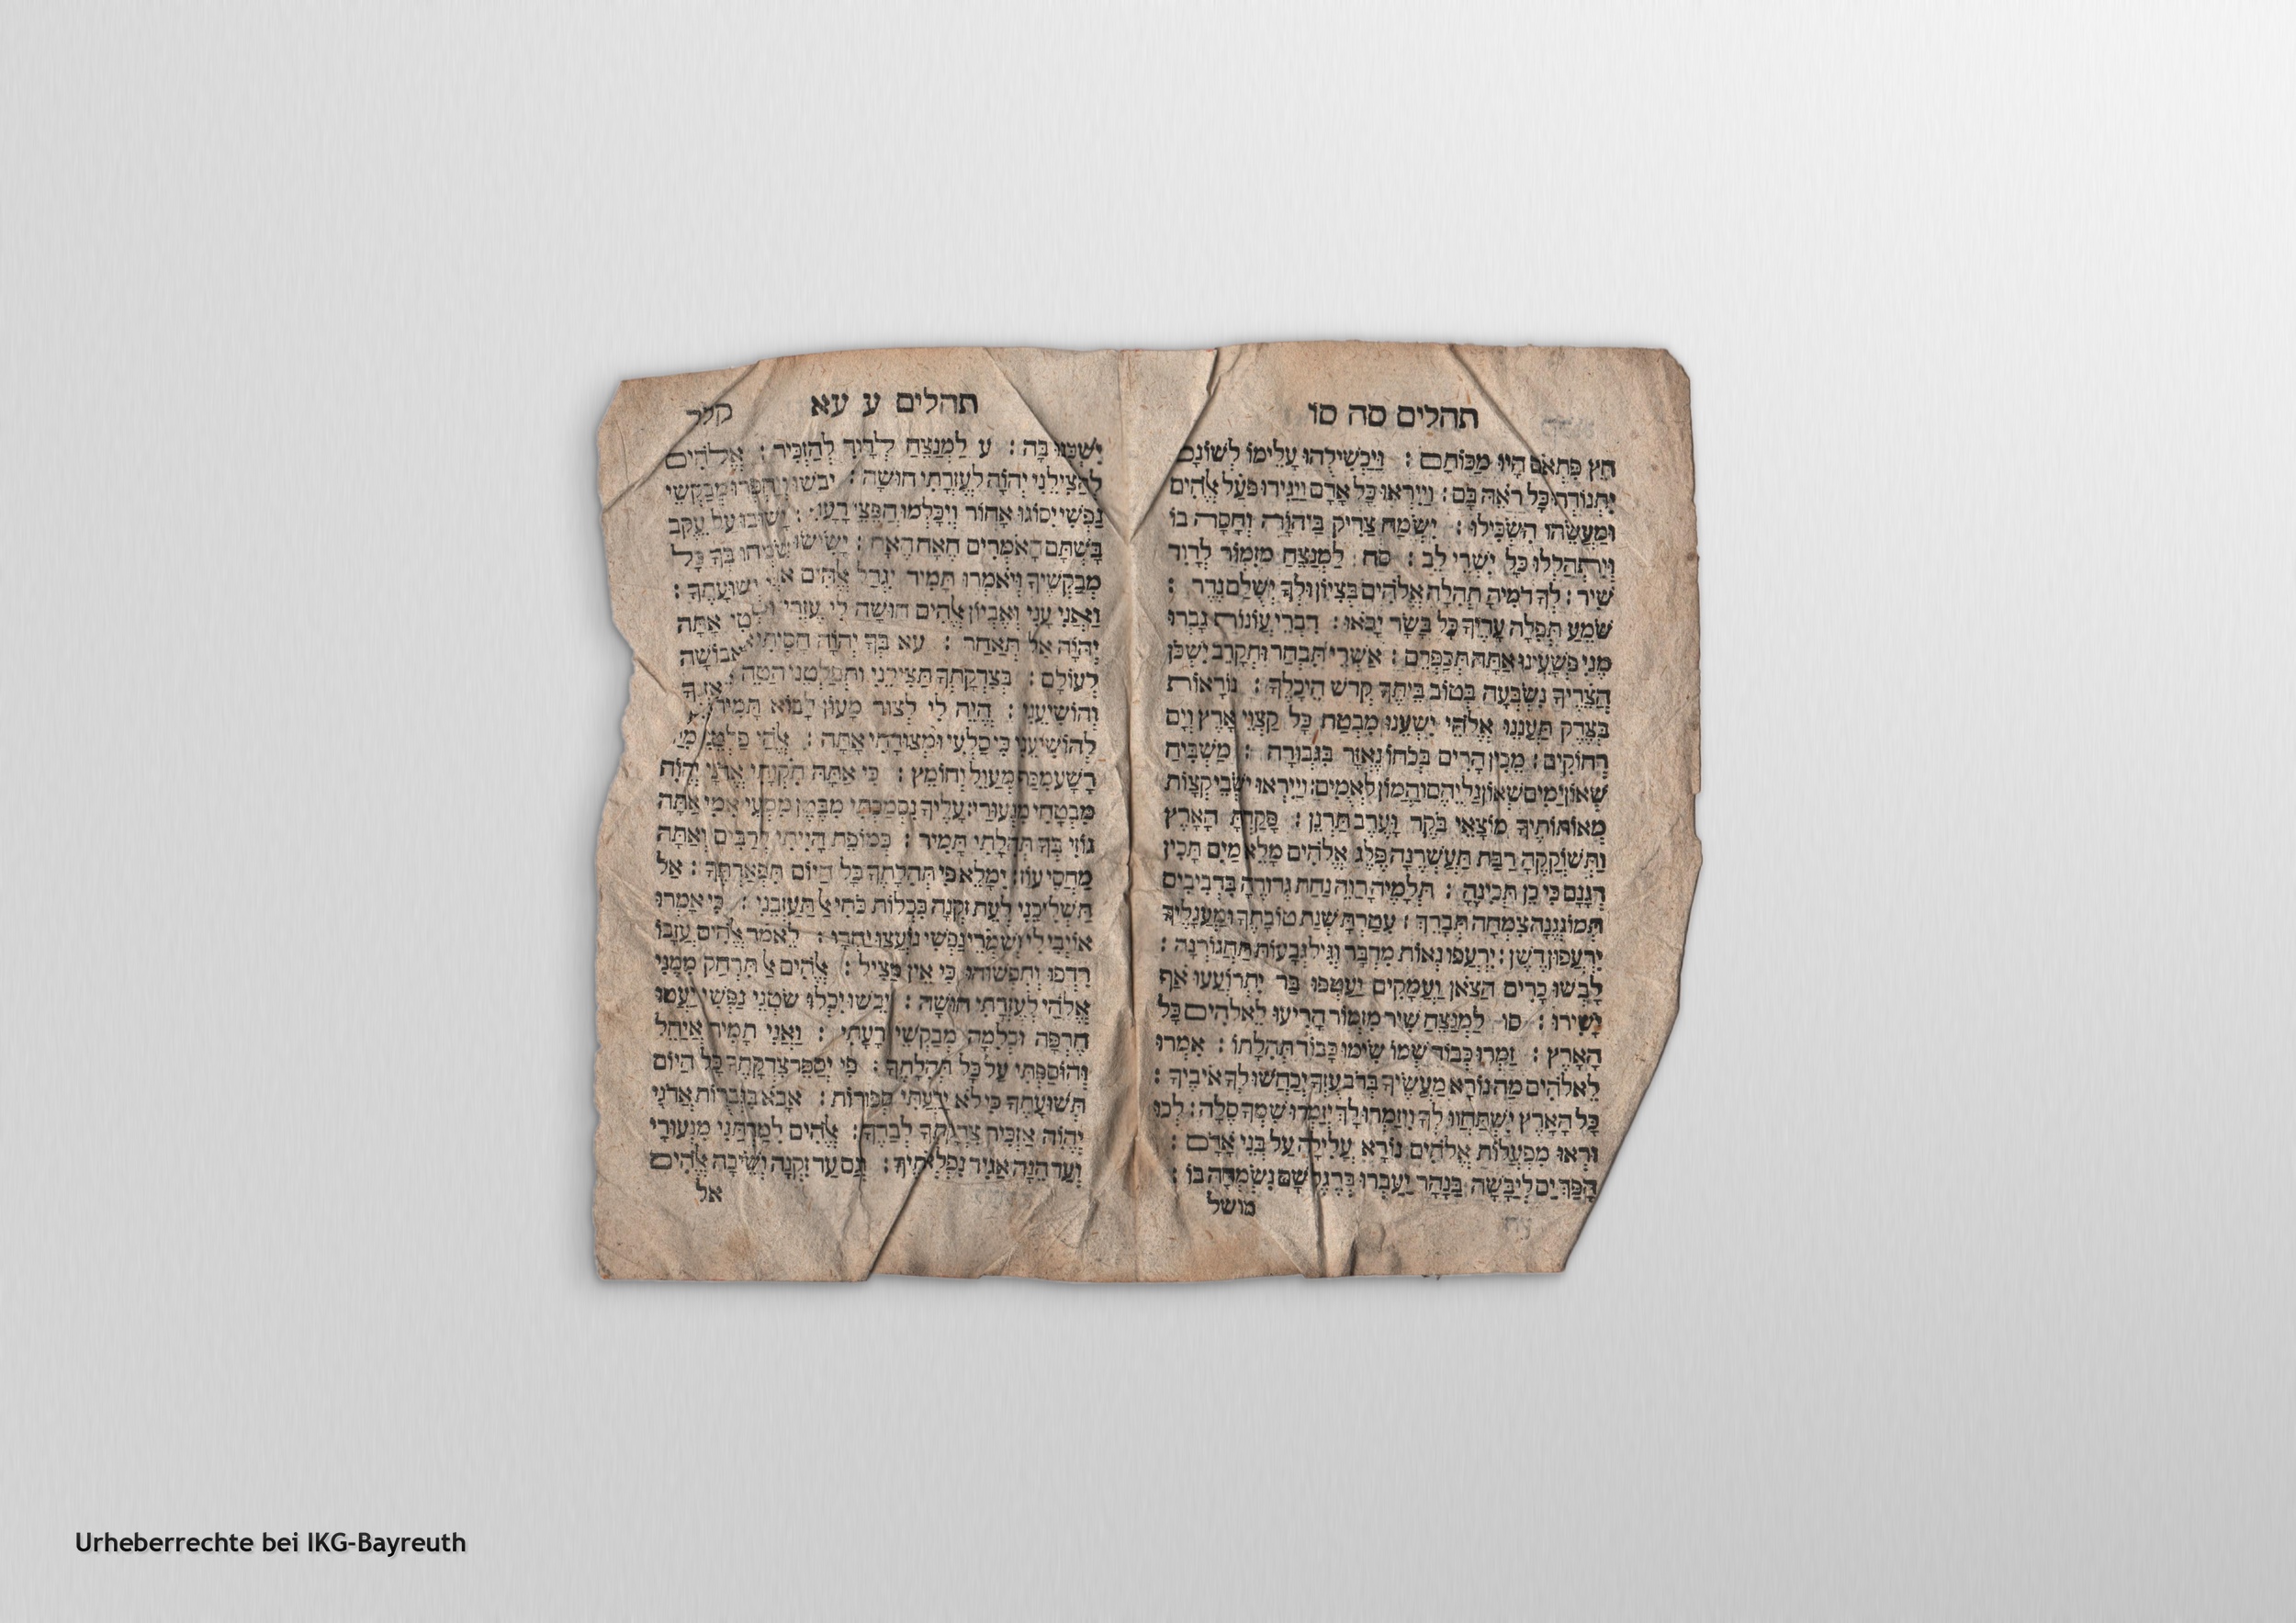 תהלים סה סו
חֵץ פִּתְאֹם הָיוּ מַכּוֹתָם : וַיַּכְשִׁילֻהוּ עָלֵימוֹ לְשׁוֹנָם
יִתְנוֹדְדוּ כָּל רֹאֵה בָם : וַיִּירְאוּ כָּל אָדָם וַיַּגִּידוּ פֹּעַל אֱלֹהִים
וּמַעֲשֵׂהוּ הִשְׂכִּילוּ : יִשְׂמַח צַדִּיק בַּיהוָה וְחָסָה בוֹ
וְיִתְהַלְלוּ כָּל יִשְׁרֵי לֵב : סה לַמְנַצֵּחַ מִזְמוֹר לְדָוִד
שִׁיר : לְךָ דֻמִיָּה תְהִלָּה אֱלֹהִים בְּצִיּוֹן וּלְךָ יְשֻׁלַּם נֶדֶר :
שֹׁמֵעַ תְּפִלָּה עָדֶיךָ כָּל בָּשָׂר יָבֹאוּ : דִּבְרֵי עֲוֹנוֹת גָּבְרוּ
מֶנִּי פְּשָׁעֵינוּ אַתָּה תְכַפְּרֵם : אַשְׁרֵי תִּבְחַר וּתְקָרֵב יִשְׁכֹּן
חֲצֵרֶיךָ נִשְׂבְּעָה בְּטוּב בֵּיתֶךָ קְדֹשׁ הֵיכָלֶךָ : נוֹרָאוֹת
בְּצֶדֶק תַּעֲנֵנוּ אֱלֹהֵי יִשְׁעֵנוּ מִבְטַח כָּל קַצְוֵי אֶרֶץ וְיָם
רְחוֹקִים : מֵכִין הָרִים בְּכֹחוֹ נֶאְזָר בִּגְבוּרָה : מַשְׁבִּיחַ
שְׁאוֹן יַמִּים שְׁאוֹן גַּלֵּיהֶם וַהֲמוֹן לְאֻמִּים : וַיִּירְאוּ יֹשְׁבֵי קְצָוֹת
מֵאוֹתוֹתֶיךָ מוֹצָאֵי בֹקֶר וָעֶרֶב תַּרְנִין : פָּקַדְתָּ הָאָרֶץ
וַתְּשׁוֹקְקֶהָ רַבַּת תַּעְשְׁרֶנָּה פֶּלֶג אֱלֹהִים מָלֵא מָיִם תָּכִין
דְּגָנָם כִּי כֵן תְּכִינֶהָ : תְּלָמֶיהָ רַוֵּה נַחֵת גְּדוּדֶהָ בִּרְבִיבִים
תְּמֹגְגֶנָּה צִמְחָהּ תְּבָרֵךְ : עִטַּרְתָּ שְׁנַת טוֹבָתֶךָ וּמַעְגָּלֶיךָ
יִרְעֲפוּן דָּשֶׁן : יִרְעֲפוּ נְאוֹת מִדְבָּר וְגִיל גְּבָעוֹת תַּחְגֹּרְנָה :
לָבְשׁוּ כָרִים הַצֹּאן וַעֲמָקִים יַעַטְפוּ בָר יִתְרוֹעֲעוּ אַף
יָשִׁירוּ : סו לַמְנַצֵּחַ שִׁיר מִזְמוֹר הָרִיעוּ לֵאלֹהִים כָּל
הָאָרֶץ : זַמְּרוּ כְבוֹד שְׁמוֹ שִׂימוּ כָבוֹד תְּהִלָּתוֹ : אִמְרוּ
לֵאלֹהִים מַה נּוֹרָא מַעֲשֶׂיךָ בְּרֹב עֻזְּךָ יְכַחֲשׁוּ לְךָ אֹיְבֶיךָ :
כָּל הָאָרֶץ יִשְׁתַּחֲווּ לְךָ וִיזַמְּרוּ לָךְ יְזַמְּרוּ שִׁמְךָ סֶלָה : לְכוּ
וּרְאוּ מִפְעֲלוֹת אֱלֹהִים נוֹרָא עֲלִילָה עַל בְּנֵי אָדָם :
הָפַךְ יָם לְיַבָּשָׁה בַּנָּהָר יַעַבְרוּ בְרָגֶל שָׁם נִשְׂמְחָה בּוֹ :
מושל
תהלים ע עא
קלד
יִשְׁכְּנוּ בָהּ : ע לַמְנַצֵּחַ לְדָוִד לְהַזְכִּיר : אֱלֹהִים
לְהַצִּילֵנִי יְהוָה לְעֶזְרָתִי חוּשָׁה : יֵבֹשׁוּ וְיַחְפְּרוּ מְבַקְשֵׁי
נַפְשִׁי יִסֹּגוּ אָחוֹר וְיִכָּלְמוּ חֲפֵצֵי רָעָתִי : יָשׁוּבוּ עַל עֵקֶב
בָּשְׁתָּם הָאֹמְרִים הֶאָח הֶאָח : יָשִׂישׂוּ וְיִשְׂמְחוּ בְּךָ כָּל
מְבַקְשֶׁיךָ וְיֹאמְרוּ תָמִיד יִגְדַּל אֱלֹהִים אֹהֲבֵי יְשׁוּעָתֶךָ :
וַאֲנִי עָנִי וְאֶבְיוֹן אֱלֹהִים חוּשָׁה לִּי עֶזְרִי וּמְפַלְטִי אַתָּה
יְהוָה אַל תְּאַחַר : עא בְּךָ יְהוָה חָסִיתִי אַל אֵבוֹשָׁה
לְעוֹלָם : בְּצִדְקָתְךָ תַּצִּילֵנִי וּתְפַלְּטֵנִי הַטֵּה אָזְנְךָ
וְהוֹשִׁיעֵנִי : הֱיֵה לִי לְצוּר מָעוֹן לָבוֹא תָּמִיד
לְהוֹשִׁיעֵנִי כִּי סַלְעִי וּמְצוּדָתִי אָתָּה : אֱלֹהַי פַּלְּטֵנִי מִיַּד
רָשָׁע מִכַּף מְעַוֵּל וְחוֹמֵץ : כִּי אַתָּה תִקְוָתִי אֲדֹנָי יְהוִה
מִבְטַחִי מִנְּעוּרָי : עָלֶיךָ נִסְמַכְתִּי מִבֶּטֶן מִמְּעֵי אִמִּי אַתָּה
גוֹזִי בְּךָ תְהִלָּתִי תָמִיד : כְּמוֹפֵת הָיִיתִי לְרַבִּים וְאַתָּה
מַחֲסִי עֹז : יִמָּלֵא פִי תְּהִלָּתֶךָ כָּל הַיּוֹם תִּפְאַרְתֶּךָ : אַל
תַּשְׁלִיכֵנִי לְעֵת זִקְנָה כִּכְלוֹת כֹּחִי אַל תַּעַזְבֵנִי : כִּי אָמְרוּ
אוֹיְבַי לִי וְשֹׁמְרֵי נַפְשִׁי נוֹעֲצוּ יַחְדָּו : לֵאמֹר אֱלֹהִים עֲזָבוֹ
רִדְפוּ וְתִפְשׂוּהוּ כִּי אֵין מַצִּיל : אֱלֹהִים אַל תִּרְחַק מִמֶּנִּי
אֱלֹהַי לְעֶזְרָתִי חוּשָׁה : יֵבֹשׁוּ יִכְלוּ שֹׂטְנֵי נַפְשִׁי יַעֲטוּ
חֶרְפָּה וּכְלִמָּה מְבַקְשֵׁי רָעָתִי : וַאֲנִי תָּמִיד אֲיַחֵל
וְהוֹסַפְתִּי עַל כָּל תְּהִלָּתֶךָ : פִּי יְסַפֵּר צִדְקָתֶךָ כָּל הַיּוֹם
תְּשׁוּעָתֶךָ כִּי לֹא יָדַעְתִּי סְפֹרוֹת : אָבֹא בִּגְבֻרוֹת אֲדֹנָי
יְהוִה אַזְכִּיר צִדְקָתְךָ לְבַדֶּךָ : אֱלֹהִים לִמַּדְתַּנִי מִנְּעוּרָי
וְעַד הֵנָּה אַגִּיד נִפְלְאוֹתֶיךָ : וְגַם עַד זִקְנָה וְשֵׂיבָה אֱלֹהִים
אל
Urheberrechte bei IKG-Bayreuth